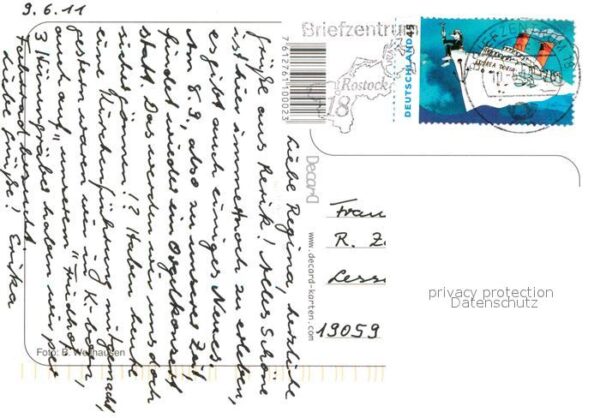 9.6.11
Liebe Regina, herzliche
Grüße aus Rerik! Alles Schöne
ist hier immer noch zu erleben,
es gibt auch einiges Neues.
Am 8.3, also zu unserer Zeit,
findet wieder ein Orgelkonzert
statt. Das werden wir uns doch
nicht gönnen!? Haben heute
eine Kirchenführung mitgemacht,
gestern waren wir in K.-born,
auch auf "unserem" Friedhof.
3 Hünengräber haben wir per
Fahrrad besucht.
Liebe Grüße! Erika
Foto: B.
Briefzentrum
18
Rostock
76127161100023
Decard
www.decard-karten.com
DEUTSCHLAND 45
BRIEFZENTRUM 18
Frau
R. Z
Lesse
19059
privacy protection
Datenschutz